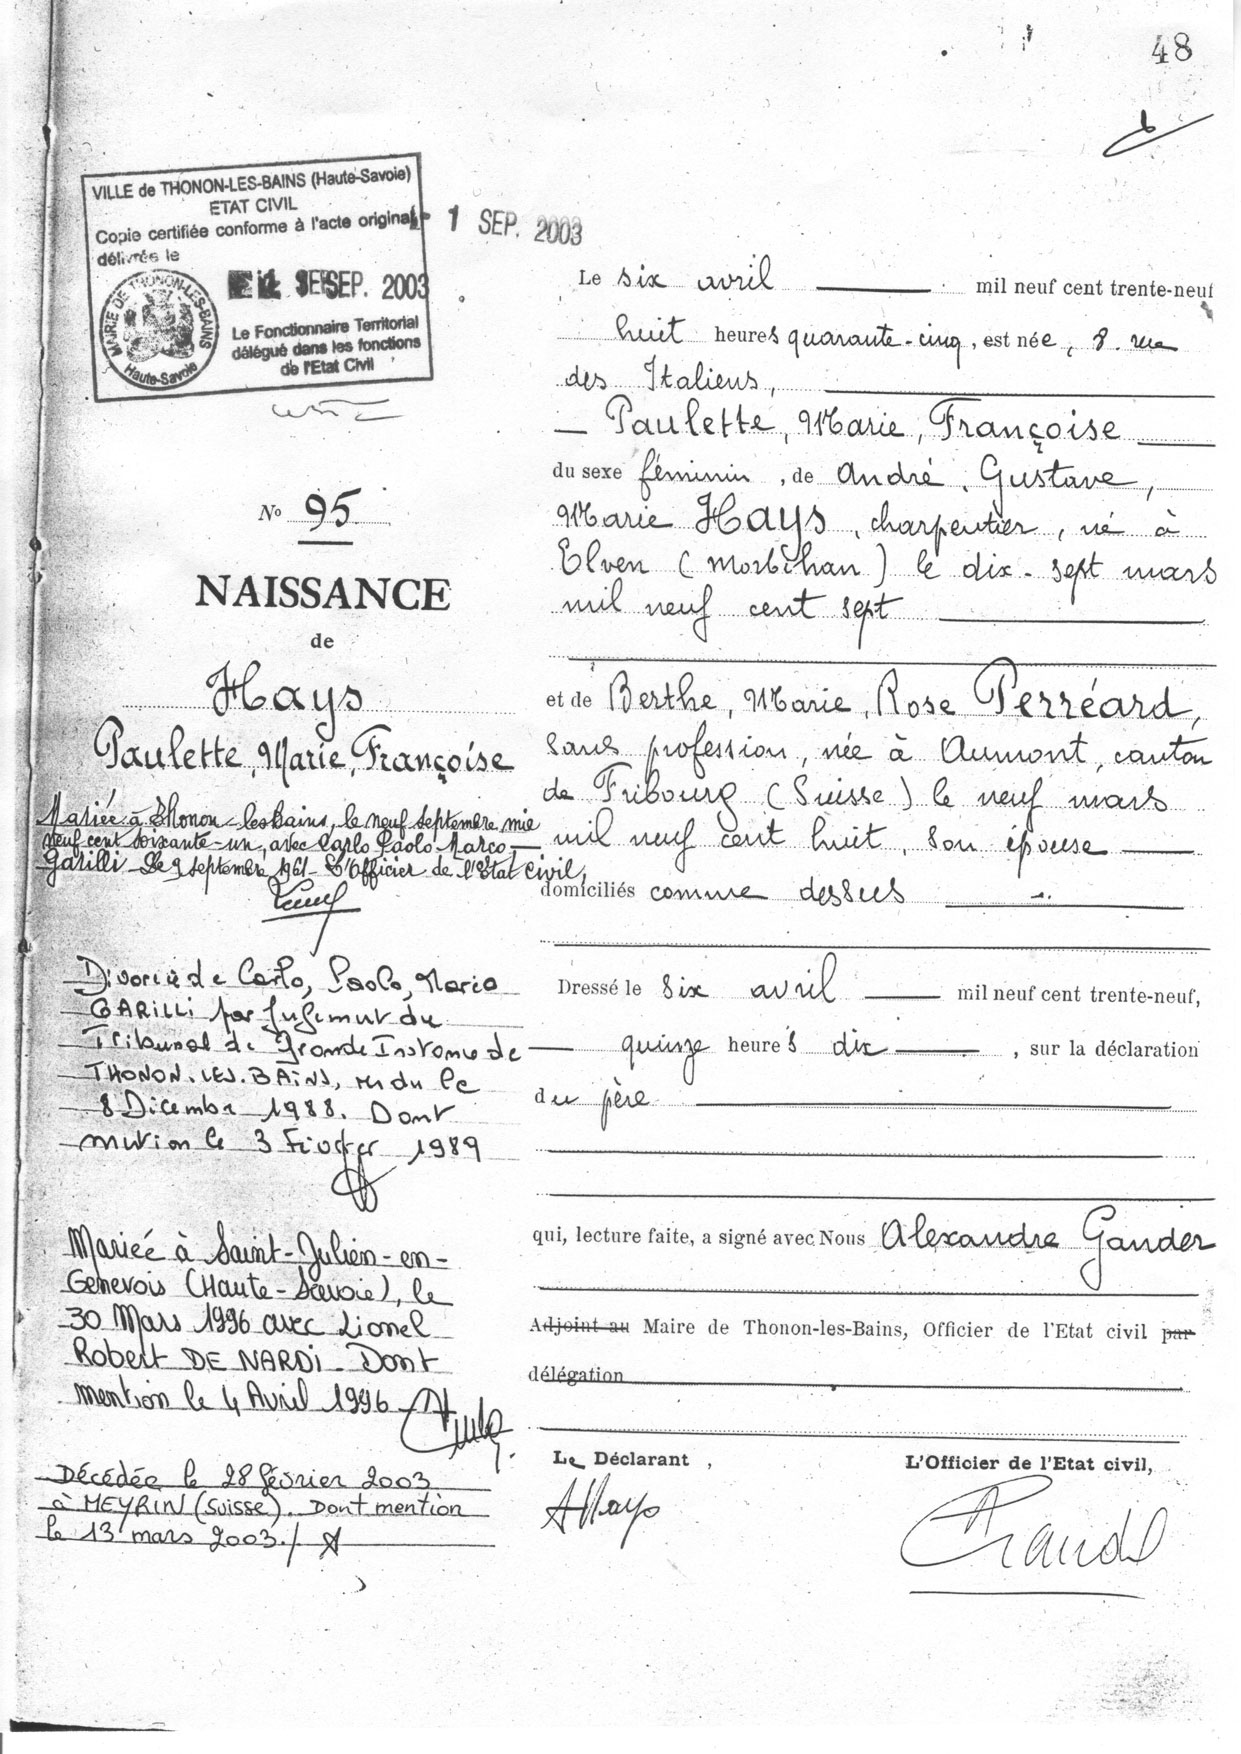 48
VILLE de THONON-LES-BAINS (Haute-Savoie)
ETAT CIVIL
Copie certifiée conforme à l'acte original
délivrée le
1 SEP. 2003
SEP. 2003
MAIRIE DE THONON-LES-BAINS
Haute-Savoie
Le Fonctionnaire Territorial
délégué dans les fonctions
de l'Etat Civil
N° 95
NAISSANCE
de
Hays
Paulette, Marie, Françoise
Mariée à Thonon-les-Bains, le neuf septembre mil
neuf cent soixante-un, avec Carlo Paolo Marco
Garilli Le 9 septembre 1961 - L'Officier de l'Etat civil,
Divorcée de Carlo, Paolo, Marco
GARILLI par Jugement du
Tribunal de Grande Instance de
THONON.LES.BAINS, rendu le
8 Décembre 1988. Dont
mention le 3 Février 1989
Mariée à Saint-Julien-en-
Genevois (Haute-Savoie), le
30 Mars 1996 avec Lionel
Robert DE NARDI - Dont
mention le 4 Avril 1996
Décédée le 28 février 2003
à MEYRIN (Suisse). Dont mention
le 13 mars 2003./.
Le six avril mil neuf cent trente-neuf
huit heures quarante-cinq, est née, 8. rue
des Italiens,
Paulette, Marie, Françoise
du sexe féminin, de André, Gustave,
Marie Hays, charpentier, né à
Elven (Morbihan) le dix-sept mars
mil neuf cent sept
et de Berthe, Marie, Rose Perréard,
sans profession, née à Aumont, canton
de Fribourg (Suisse) le neuf mars
mil neuf cent huit, son épouse
domiciliés comme dessus
Dressé le six avril mil neuf cent trente-neuf,
quinze heures dix , sur la déclaration
du père
qui, lecture faite, a signé avec Nous Alexandre Gander
Adjoint au Maire de Thonon-les-Bains, Officier de l'Etat civil par
délégation
Le Déclarant ,
L'Officier de l'Etat civil,
AHays